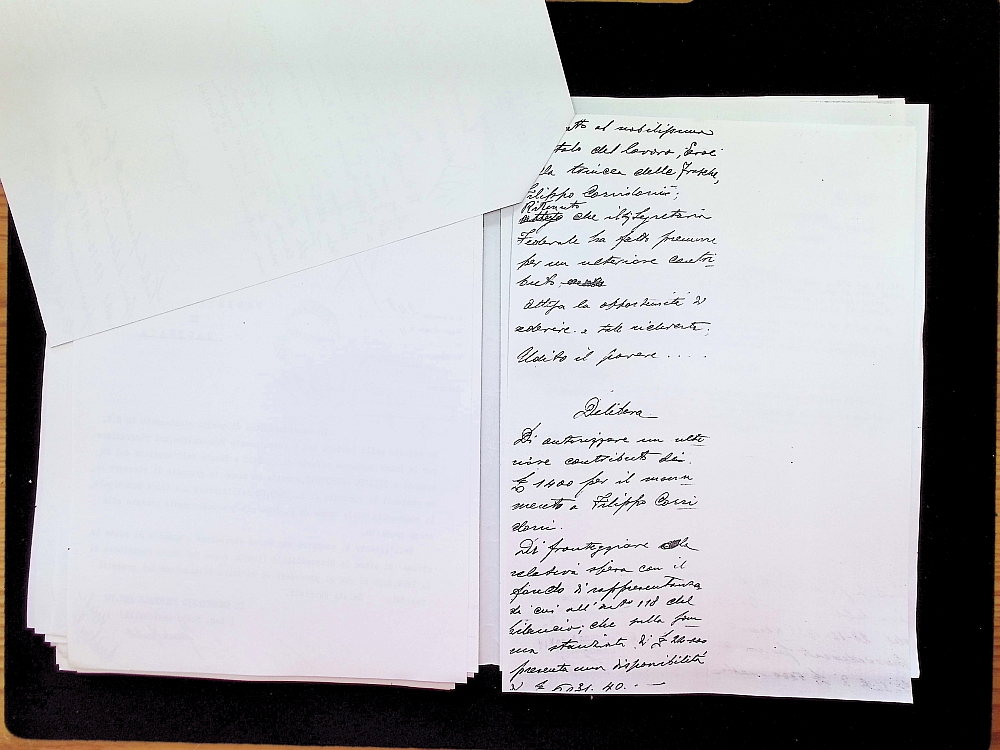 al nobilissimo
del lavoro, Eroe
la trincea delle Frasche,
Filippo Corridoni;
Ritenuto
che il Segretario
Federale ha fatto premure
per un ulteriore contri
buto.
Attesa la opportunità di
aderire a tale richiesta;
Udito il parere ....
Delibera
Di autorizzare un ulte
riore contributo di
£ 1400 per il monu
mento a Filippo Corri
doni.
Di fronteggiare la
relativa spesa con il
fondo di rappresentanza
di cui all'art. 118 del
bilancio; che sulla som
ma stanziata di £
presenta una disponibilità
di £